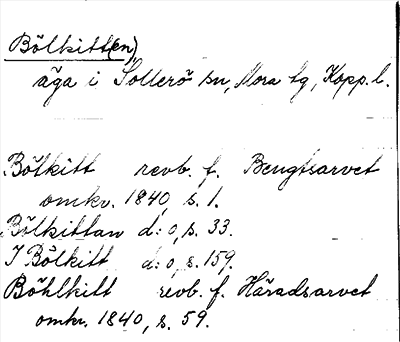 Bölkitt(en)
äga i Sollerö sn, Mora tg, Kopp. l.
Bölkitt revb. f. Bengtsarvet
omkr. 1840, s. 1.
Bölkittan d:o, s. 33.
I Bölkitt d:o, s. 159.
Böhlkitt revb. f. Häradsarvet
omkr. 1840, s. 59.